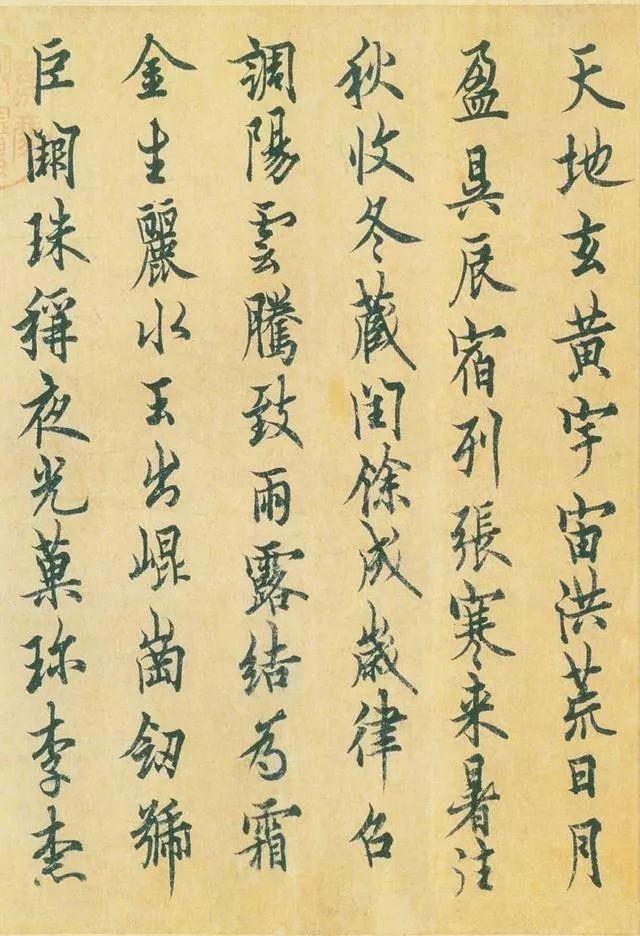 天地玄黄宇宙洪荒日月
盈昃辰宿列張寒来暑往
秋收冬藏閏餘成歲律召
調陽雲騰致雨露結為霜
金生麗水玉出崐崗劒號
巨闕珠稱夜光菓珎李柰